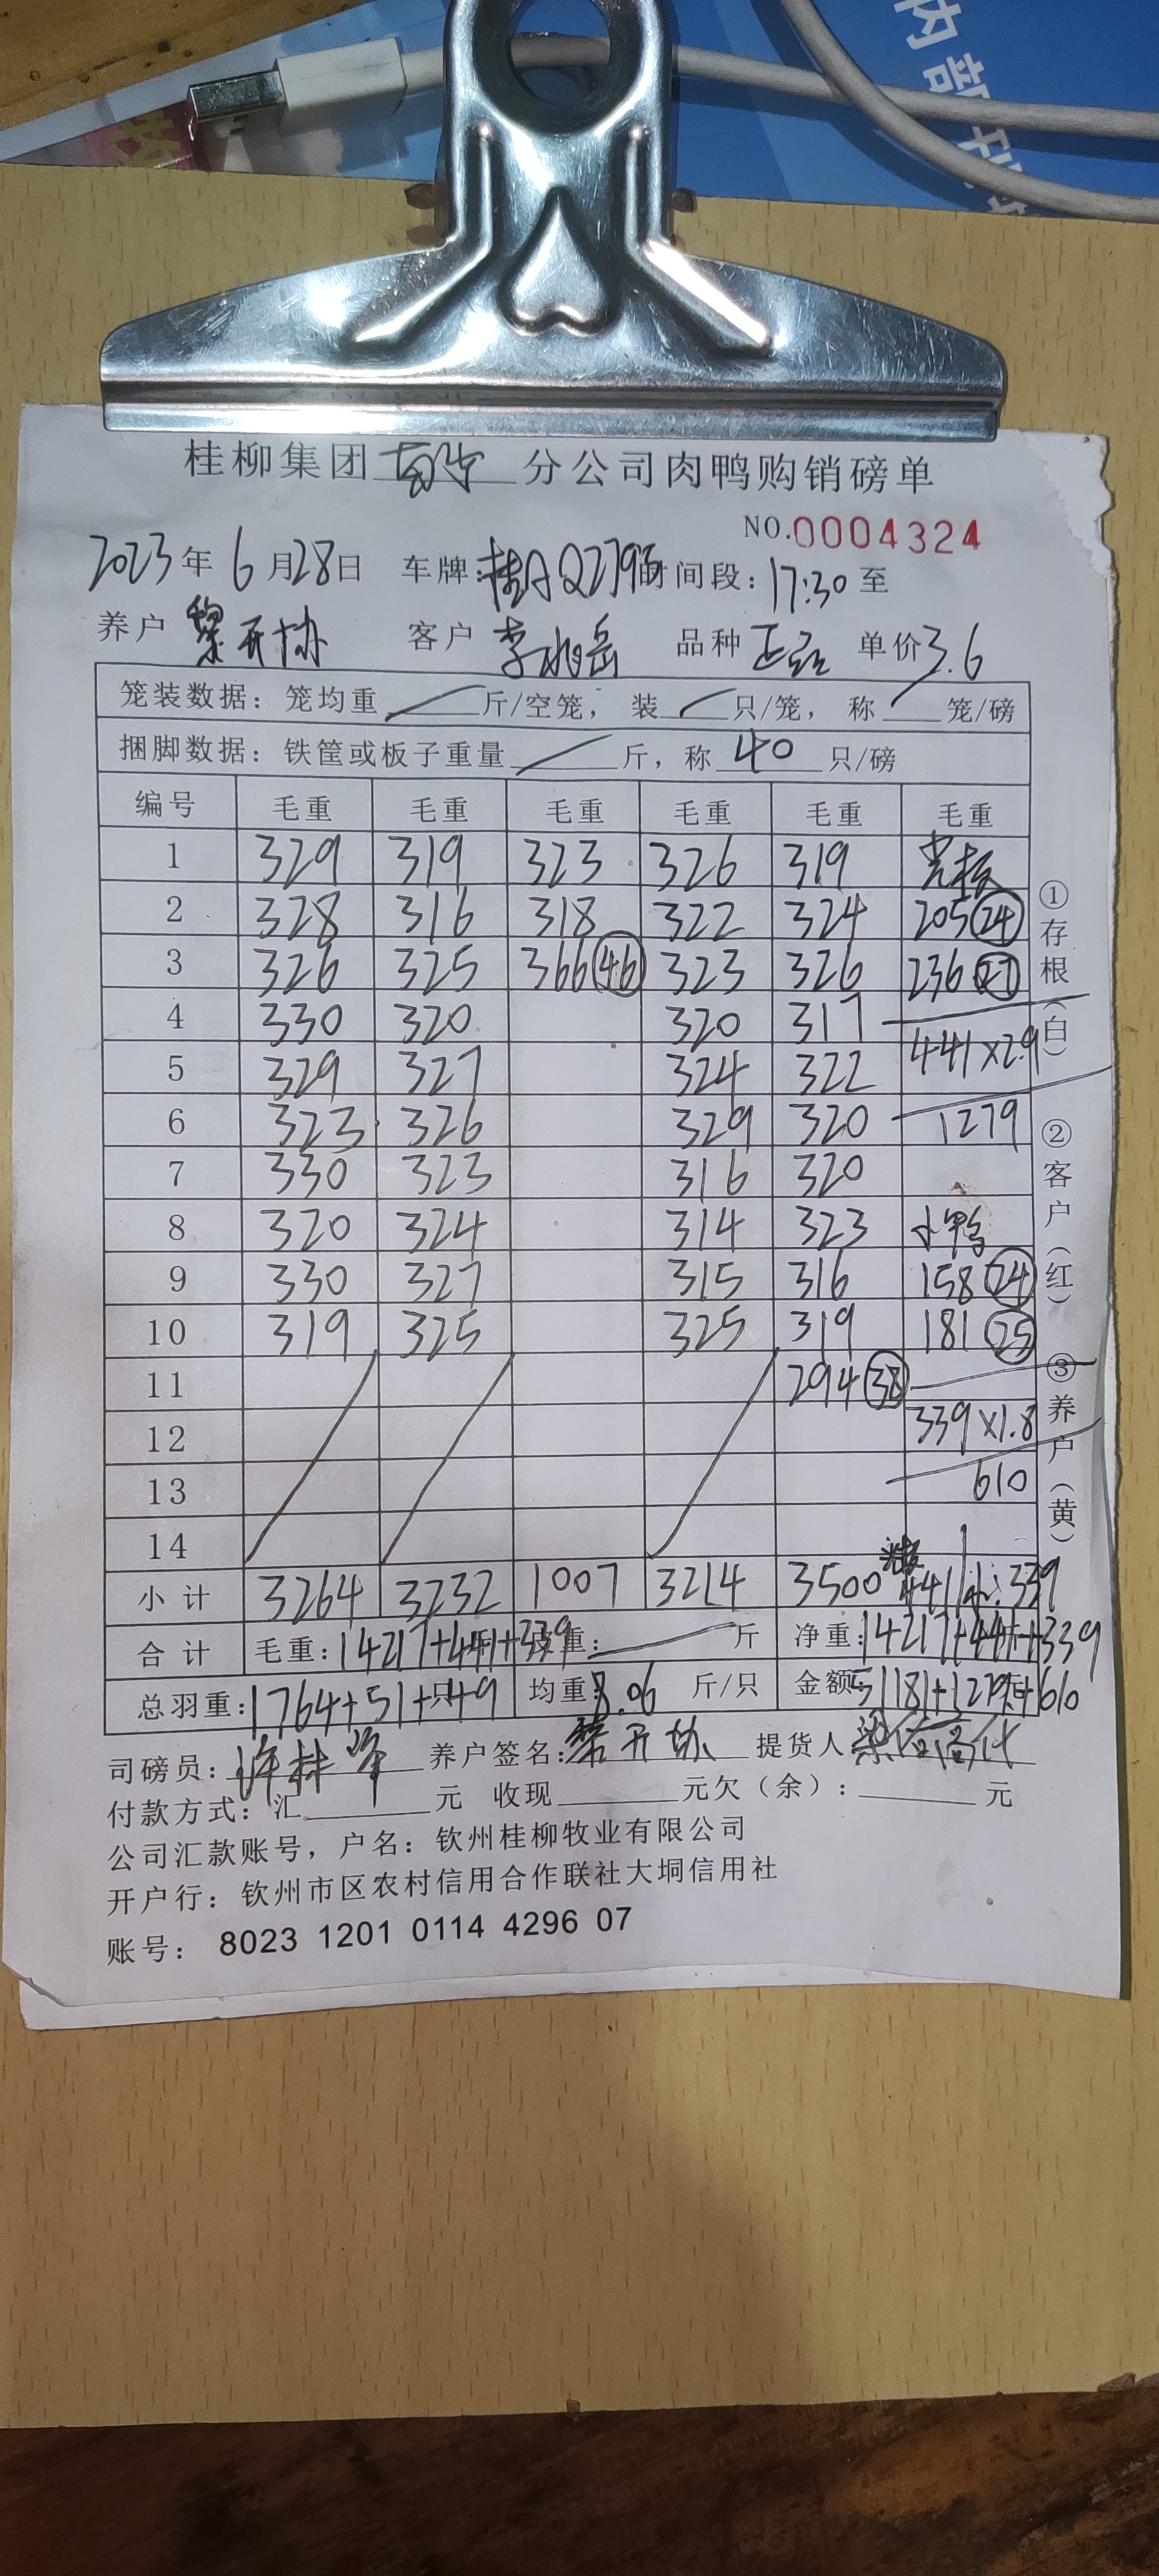 内部刊
桂柳集团 分公司肉鸭购销磅单
NO.0004324
2023年6月28日 车牌:桂A Q2795 时间段:17:30至
养户 黎开协 客户 李 岳 品种 单价3.6
笼装数据:笼均重 斤/空笼,装 只/笼,称 笼/磅
捆脚数据:铁筐或板子重量 斤,称 40 只/磅
编号 毛重 毛重 毛重 毛重 毛重 毛重
1 329 319 323 326 319
2 328 316 318 322 324 205(24)
3 326 325 366(46) 323 326 236(27)
4 330 320 320 317
5 329 327 324 322 441×2.9
6 323 326 329 320 1279
7 330 323 316 320
8 320 324 314 323 小鸭
9 330 327 315 316 158(24)
10 319 325 325 319 181(25)
11 294(38)
12 339×1.8
13 610
14
小计 3264 3232 1007 3214 3500 441 小:339
合计 毛重:14217+441+339 皮重: 斤 净重:14217+441+339
总羽重:1764+51+49只 均重8.06斤/只 金额:51181+1279+610
司磅员:许林峰 养户签名:黎开协 提货人
付款方式:汇 元 收现 元欠(余): 元
公司汇款账号,户名:钦州桂柳牧业有限公司
开户行:钦州市区农村信用合作联社大垌信用社
账号: 8023 1201 0114 4296 07
①存根(白) ②客户(红) ③养户(黄)